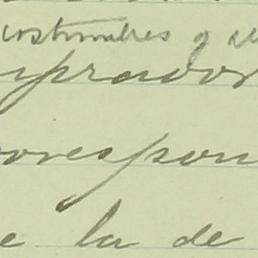 costumbres y
prador
correspon
e la de